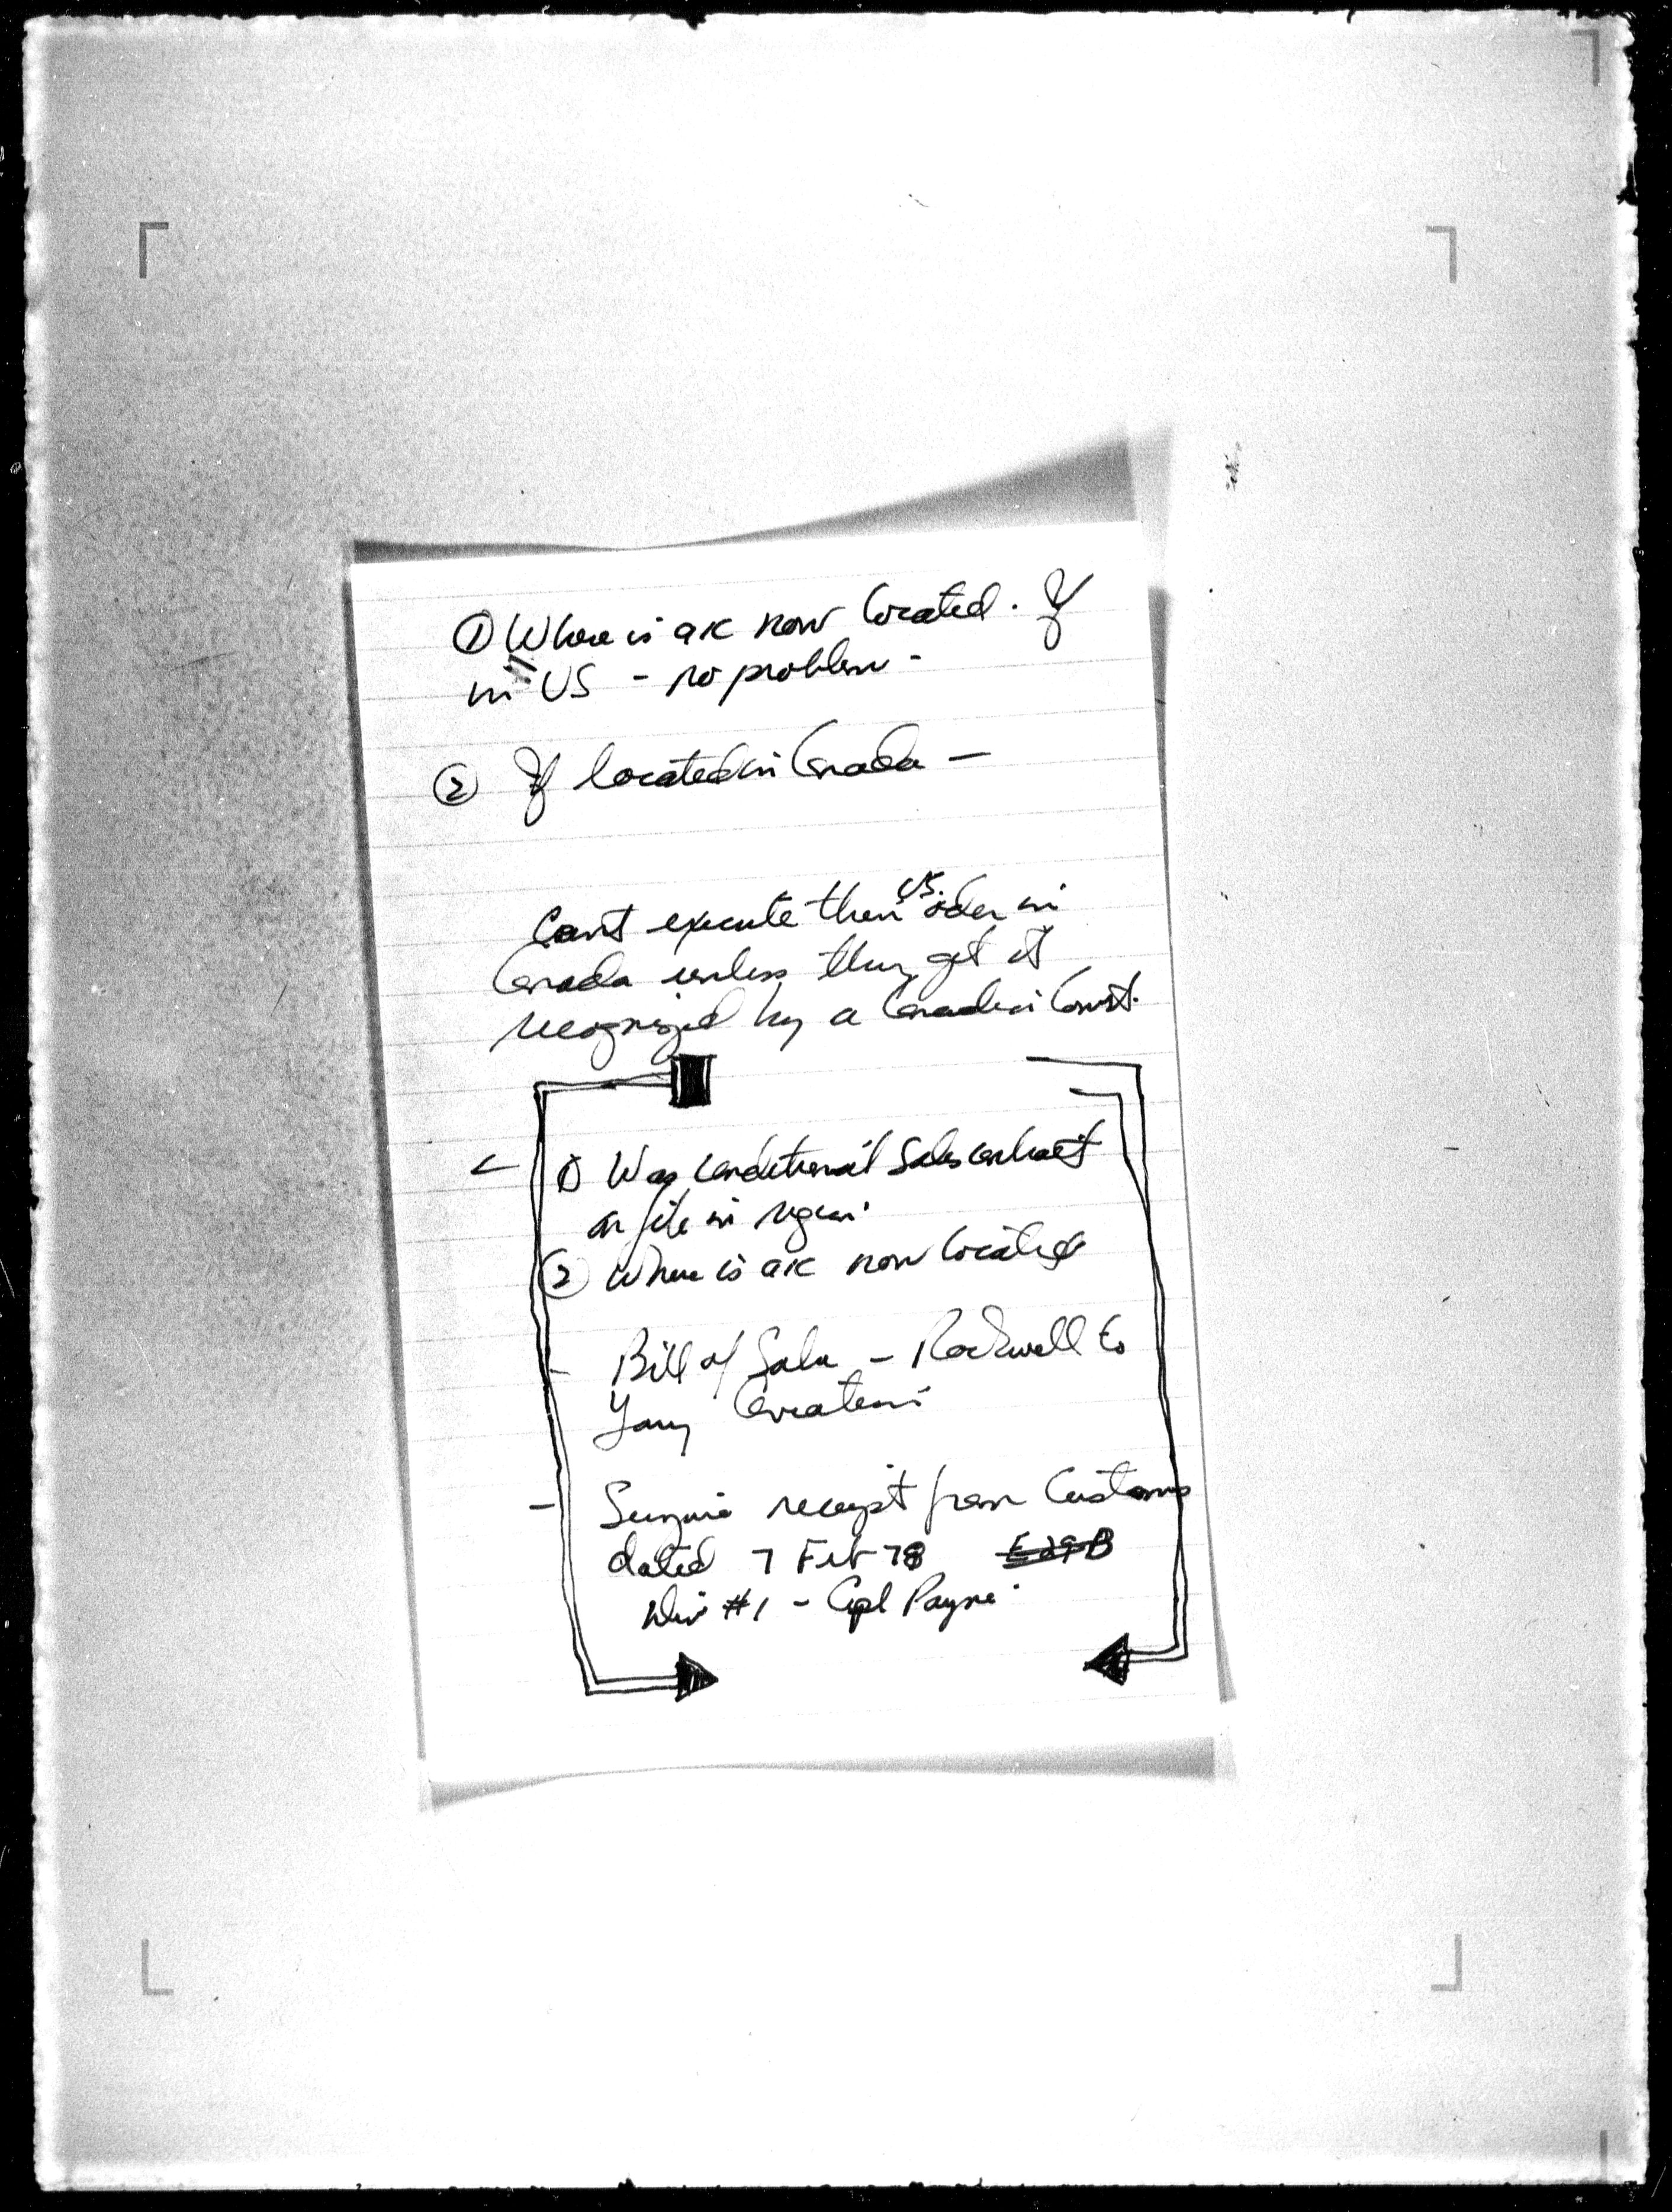 ① Where is a/c now located. If
in US - no problem -
② If located in Canada -
Can't execute their US. order in
Canada unless they get it
recognized by a Canadian Court.
① Was conditional Sales contract
on file in
② Where is a/c now located
- Bill of Sale - Rockwell to
Aviation
- Seizure receipt from Customs
dated 7 Feb 78
Div #1 - Cpl Payne